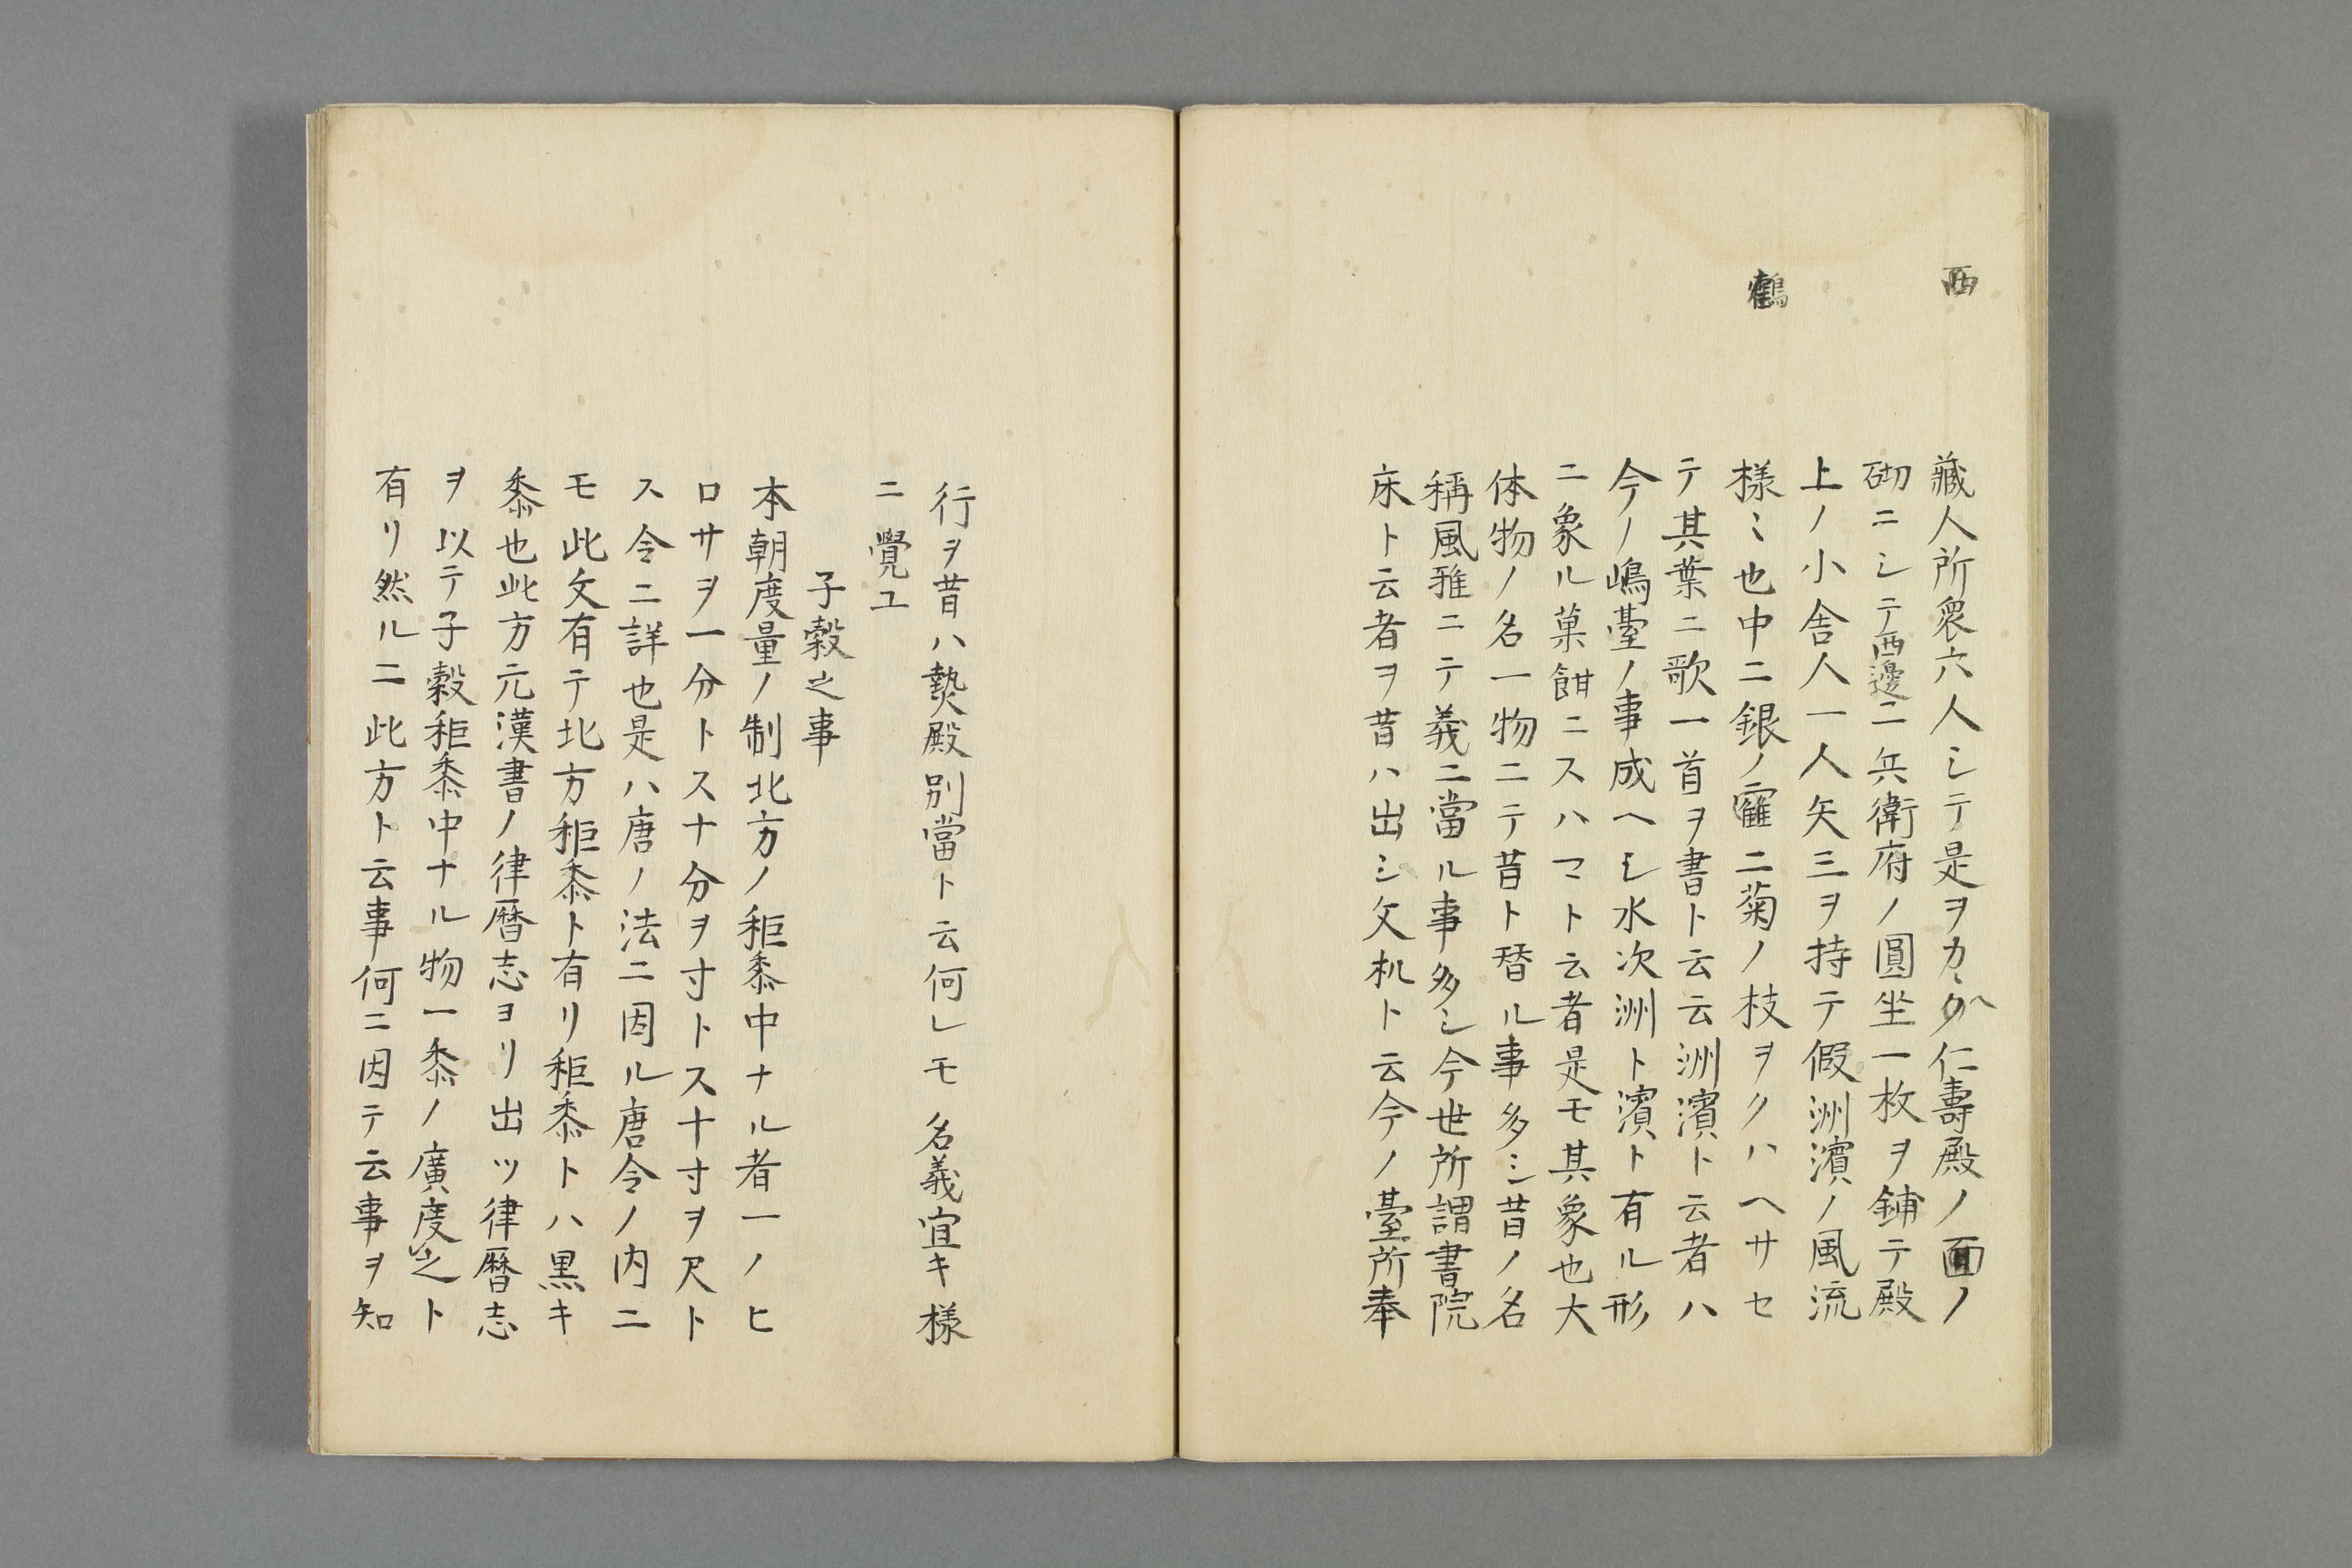 西
鶴
藏人所衆六人シテ是ヲカヽク仁壽殿ノ面ノ
砌ニシテ西邊ニ兵衛府ノ圓坐一枚ヲ鋪テ殿
上ノ小舎人一人矢三ヲ持テ假洲濱ノ風流
様ミ也中ニ銀ノ靏ニ菊ノ枝ヲクハヘサセ
テ其葉ニ歌一首ヲ書ト云云洲濱ト云者ハ
今ノ嶋臺ノ事成ヘシ水次洲ト濱ト有ル形
ニ象ル菓餠ニスハマト云者是モ其象也大
体物ノ名一物ニテ昔ト替ル事多シ昔ノ名
稱風雅ニテ義ニ當ル事多シ今世所謂書院
床ト云者ヲ昔ハ出シ文机ト云今ノ臺所奉
行ヲ昔ハ熱殿別當ト云何レモ名義宜キ様
ニ覺ユ
子穀之事
本朝度量ノ制北方ノ秬黍中ナル者一ノヒ
ロサヲ一分トス十分ヲ寸トス十寸ヲ尺ト
ス令ニ詳也是ハ唐ノ法ニ因ル唐令ノ内ニ
モ此文有テ北方秬黍ト有リ秬黍トハ黒キ
黍也此方元漢書ノ律暦志ヨリ出ツ律暦志
ヲ以テ子穀秬黍中ナル物一黍ノ廣度之ト
有リ然ルニ此方ト云事何ニ因テ云事ヲ知